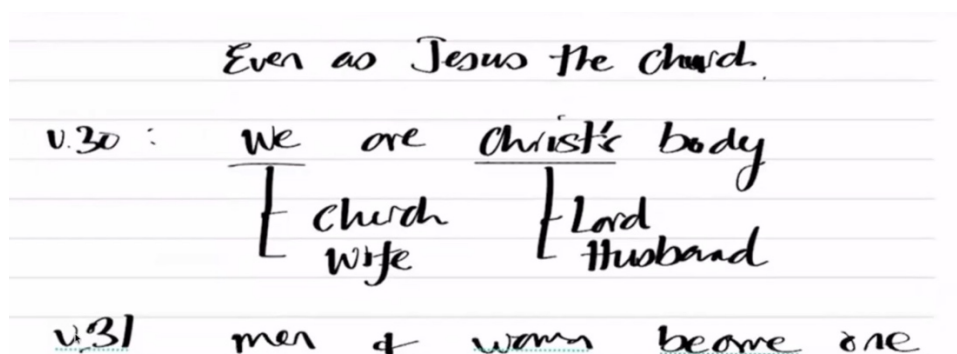 Even as Jesus the church.
v.30 : We are Christ's body
Church Lord
Wife Husband
v.31 men & women become one